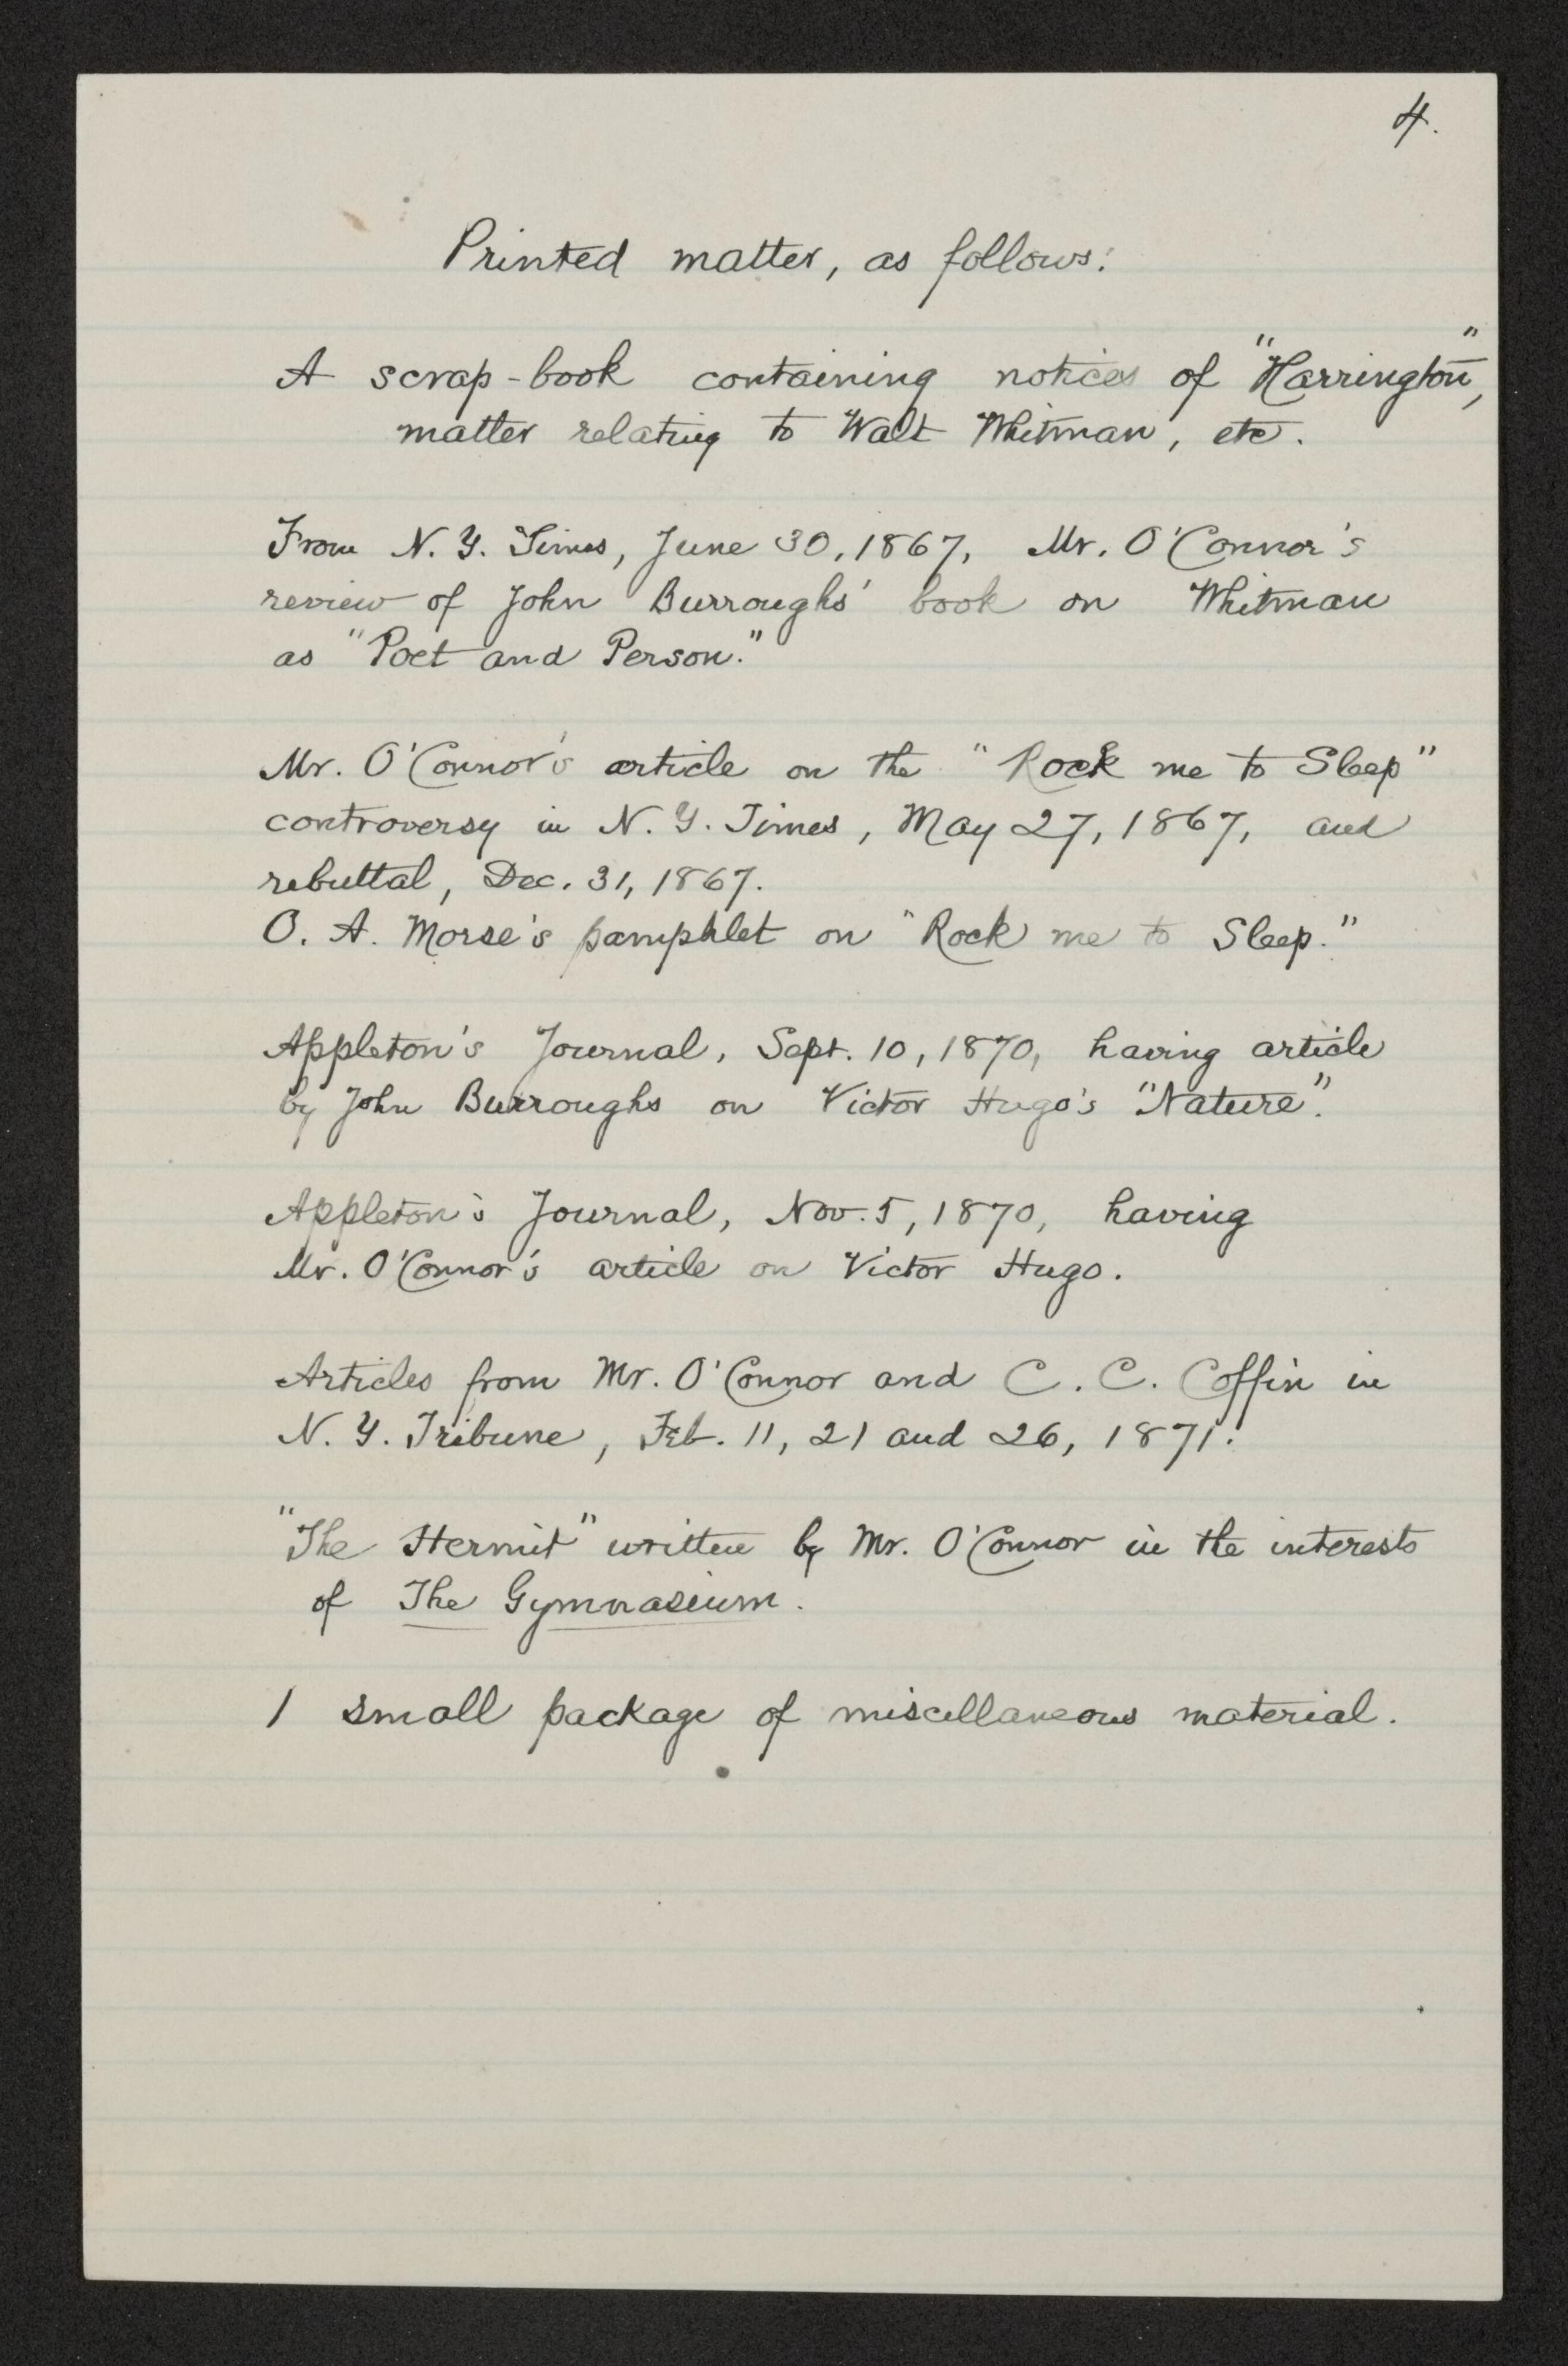 4.
Printed matter, as follows:
A scrap-book containing notices of "Harrington",
matter relating to Walt Whitman, etc.
From N. Y. Times, June 30, 1867, Mr. O'Connor's
review of John Burroughs' book on Whitman
as "Poet and Person."
Mr. O'Connor's article on the "Rock me to Sleep"
controversy in N. Y. Times, May 27, 1867, and
rebuttal, Dec. 31, 1867.
O. A. Morse's pamphlet on "Rock me to Sleep."
Appleton's Journal, Sept. 10, 1870, having article
by John Burroughs on Victor Hugo's "Nature".
Appleton's Journal, Nov. 5, 1870, having
Mr. O'Connor's article on Victor Hugo.
Articles from Mr. O'Connor and C. C. Coffin in
N. Y. Tribune, Feb. 11, 21 and 26, 1871.
"The Hermit" written by Mr. O'Connor in the interests
of The Gymnasium.
1 small package of miscellaneous material.